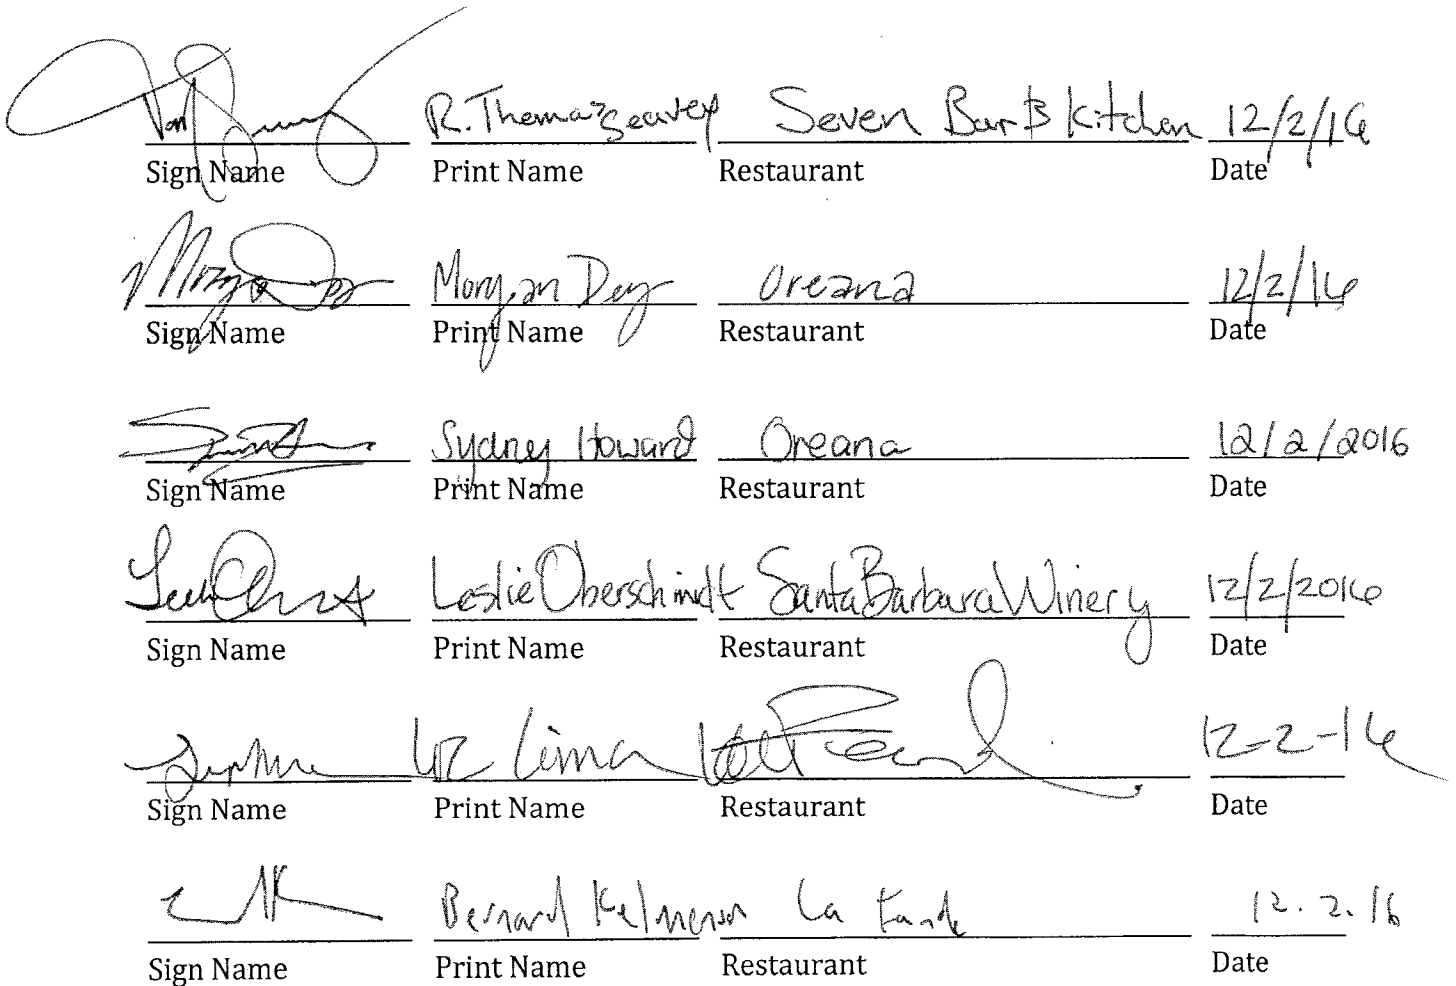 R. Thomas Seavey Seven Bar & Kitchen 12/2/16
Sign Name Print Name Restaurant Date
Morgan Dey Oreana 12/2/16
Sign Name Print Name Restaurant Date
Sydney Howard Oreana 12/2/2016
Sign Name Print Name Restaurant Date
Leslie Oberschmidt Santa Barbara Winery 12/2/2016
Sign Name Print Name Restaurant Date
Lima 12-2-16
Sign Name Print Name Restaurant Date
Bernard La 12.2.16
Sign Name Print Name Restaurant Date